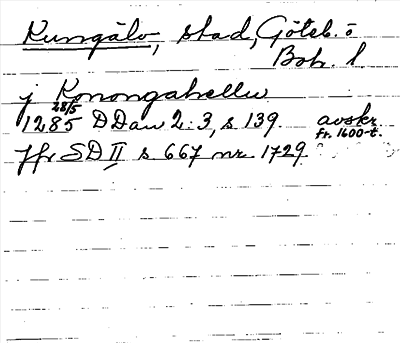 Kungälv, stad, Göteb. o
Boh. l
j Konongahellu
28/5
1285 DDan 2:3, s 139. avskr. fr. 1600-t.
Jfr SD II s 667 nr 1729.